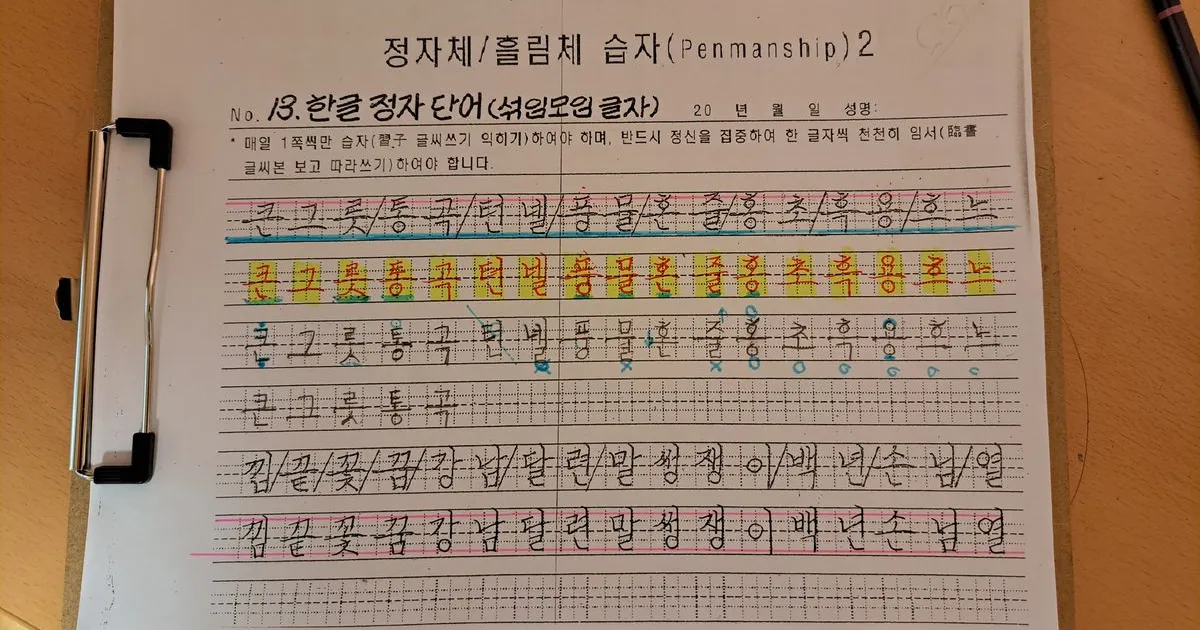 정자체/흘림체 습자(Penmanship)2
No. 13. 한글 정자 단어(섞임모임 글자) 20 년 월 일 성명:
* 매일 1쪽씩만 습자(習子 글씨쓰기 익히기)하여야 하며, 반드시 정신을 집중하여 한 글자씩 천천히 임서(臨書
글씨본 보고 따라쓰기)하여야 합니다.
큰 그 릇/통 곡/턴 넬/풍 물/혼 줄/홍 초/흑 용/흐 느
큰 그 릇 통 곡 턴 넬 풍 물 혼 줄 홍 초 흑 용 흐 느
큰 그 릇 통 곡 턴 넬 풍 물 혼 줄 홍 초 흑 용 흐 느
큰 그 릇 통 곡
낌/끝/꽃/꿈/강 남/달 련/말 썽 쟁 이/백 년/손 님/열
낌 끝 꽃 꿈 강 남 달 련 말 썽 쟁 이 백 년 손 님 열